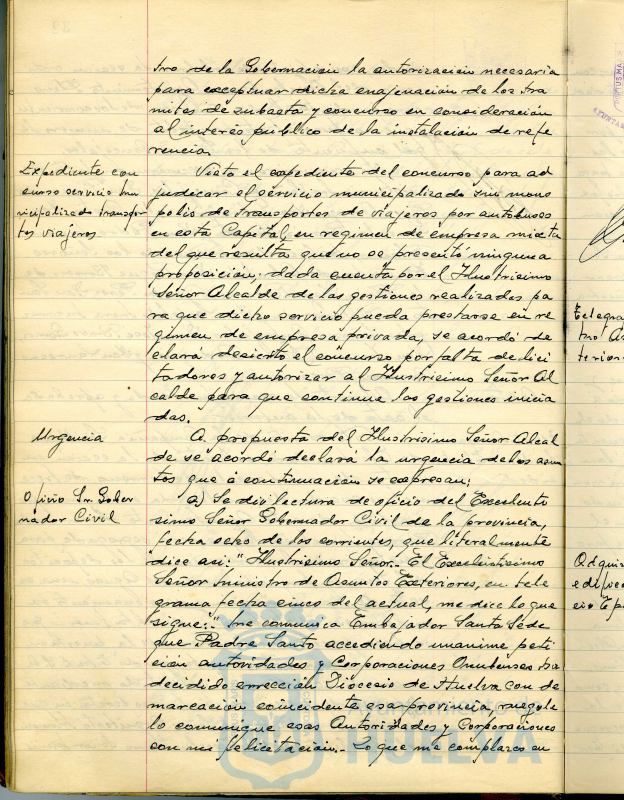 tro de la Gobernación la autorización necesaria
para exceptuar dicha enajenación de los trá
mites de subasta y concurso en consideración
al interés público de la instalación de refe
rencia.
Expediente con
curso servicio mu
nicipalizado transpor
tes viajeros
Visto el expediente del concurso para ad
judicar el servicio municipalizado sin mono
polio de transportes de viajeros por autobuses
en esta Capital, en regimen de empresa mixta
del que resulta que no se presentó ninguna
proposición; dada cuenta por el Ilustrisimo
Señor Alcalde de las gestiones realizadas pa
ra que dicho servicio pueda prestarse en ré
gimen de empresa privada, se acordó de
clarar desierto el concurso por falta de lici
tadores y autorizar al Ilustrisimo Señor Al
calde para que continue las gestiones inicia
das.
Urgencia
A propuesta del Ilustrisimo Señor Alcal
de se acordó declará la urgencia de los asun
tos que á continuación se expresan:
Oficio Sr. Gober
nador Civil
a) Se dió lectura de oficio del Excelentí
simo Señor Gobernador Civil de la provincia,
fecha ocho de los corrientes, que literalmente
dice asi: "Ilustrisimo Señor.- El Excelentísimo
Señor Ministro de Asuntos Exteriores, en tele
grama fecha cinco del actual, me dice lo que
sigue: "Me comunica Embajador Santa Sede
que Padre Santo accediendo unanime peti
ción autoridades y Corporaciones Onubenses ha
decidido errección Diocesis de Huelva con de
marcación coincidente esa provincia, ruegole
lo comunique esas Autoridades y Corporaciones
con mi felicitación.- Lo que me complazco en
telegra
tro As
teriore
Adquis
edif
HUELVA